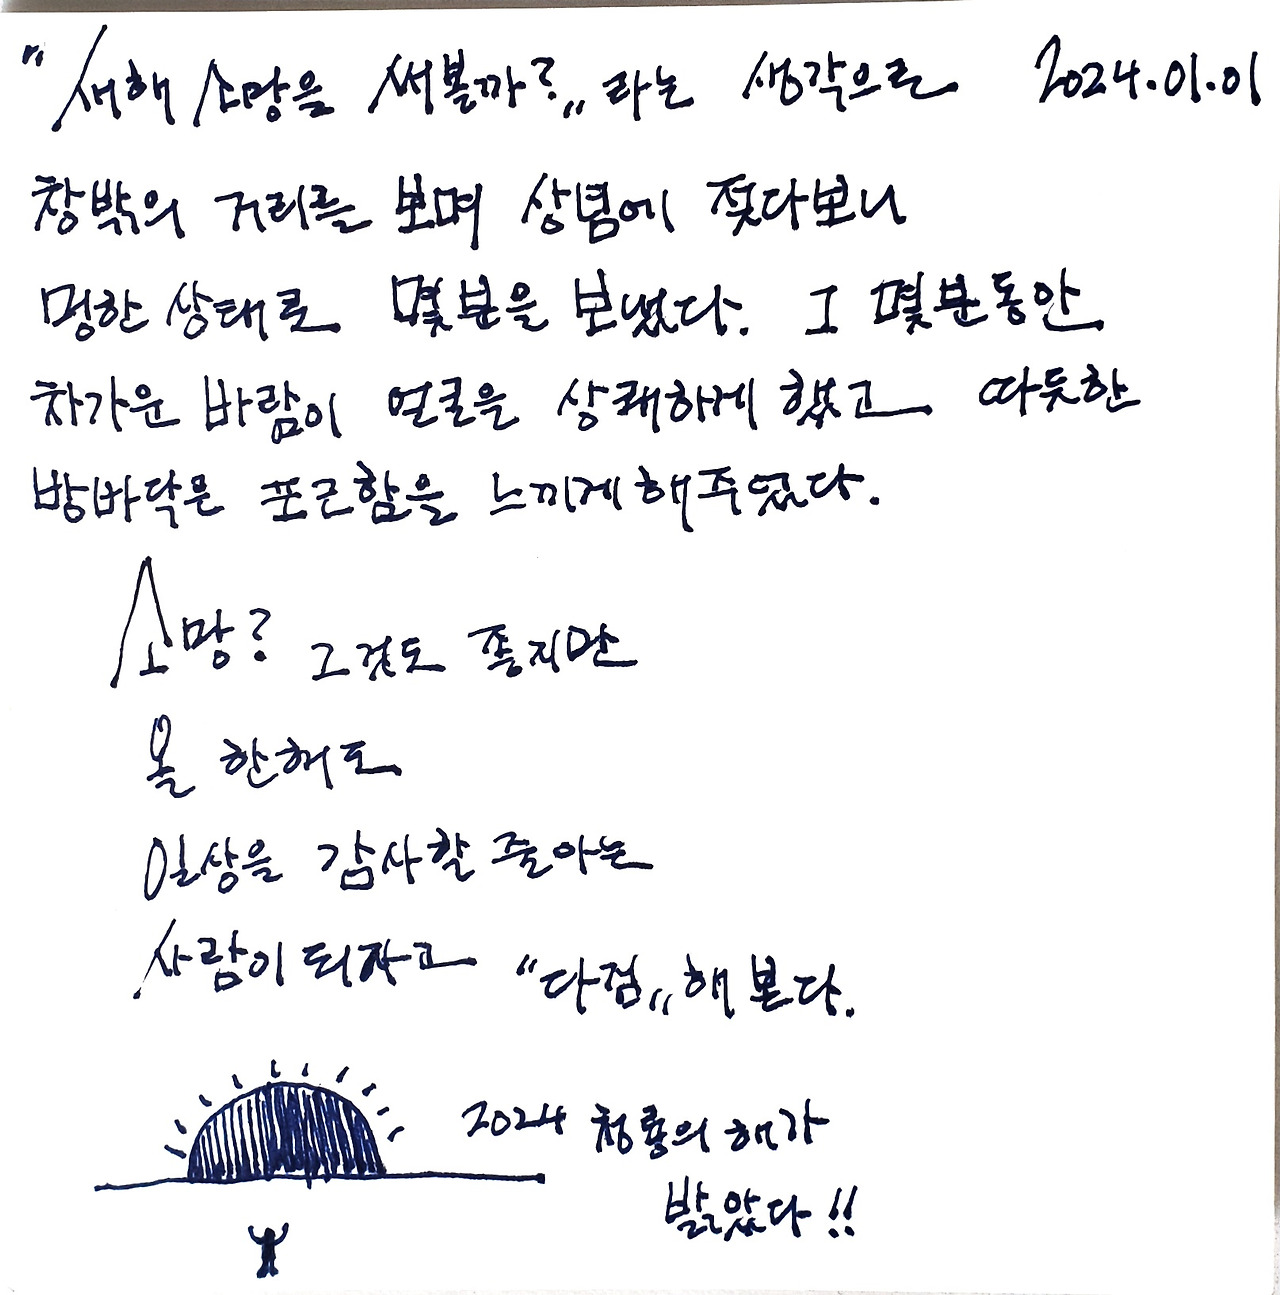 "새해 소망을 써볼까?" 라는 생각으로 2024.01.01
창밖의 거리를 보며 상념에 젖다보니
멍한 상태로 몇분을 보냈다. 그 몇분동안
차가운 바람이 얼굴을 상쾌하게 했고 따듯한
방바닥은 포근함을 느끼게 해주었다.
소망? 그것도 좋지만
올 한해도
일상을 감사할 줄 아는
사람이 되자고 "다짐" 해 본다.
2024 청룡의 해가
밝았다!!